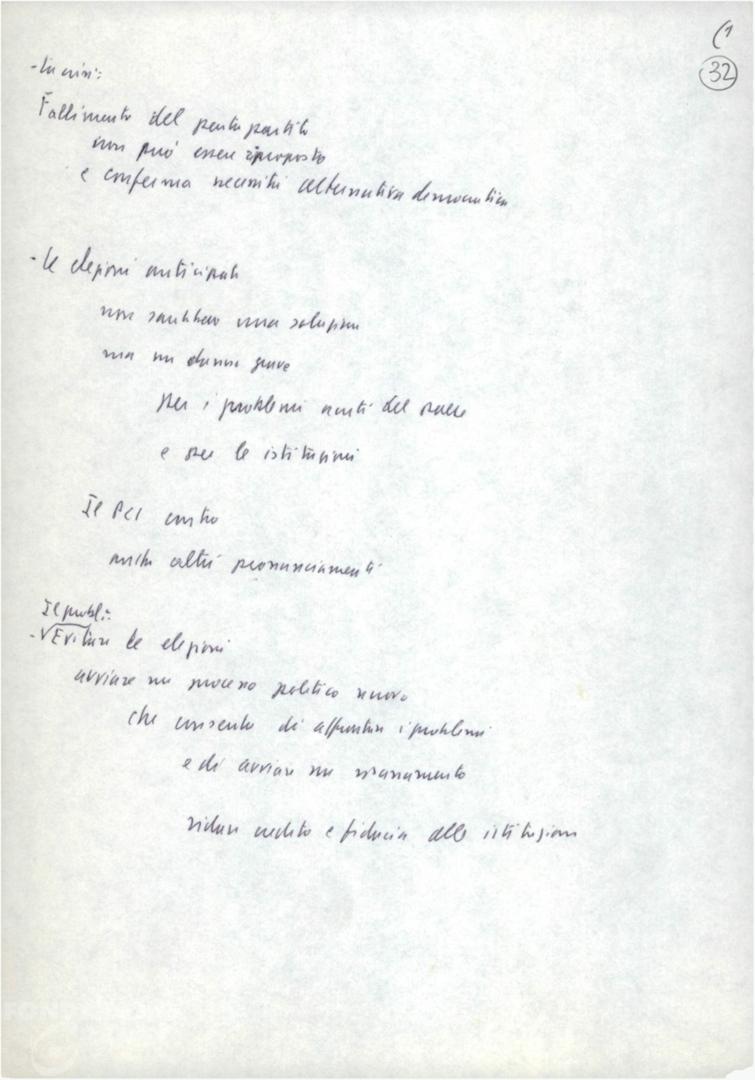 (1
32
- La crisi:
Fallimento del pentapartito
non può essere riproposto
e conferma necessità alternativa democratica
- Le elezioni anticipate
non sarebbero una soluzione
ma un danno grave
per i problemi acuti del paese
e per le istituzioni
Il PCI contro
anche altri pronunciamenti
Il probl:
- Evitare le elezioni
avviare un processo politico nuovo
che consenta di affrontare i problemi
e di avviare un risanamento
ridare credito e fiducia alle istituzioni
FONDAZIONE